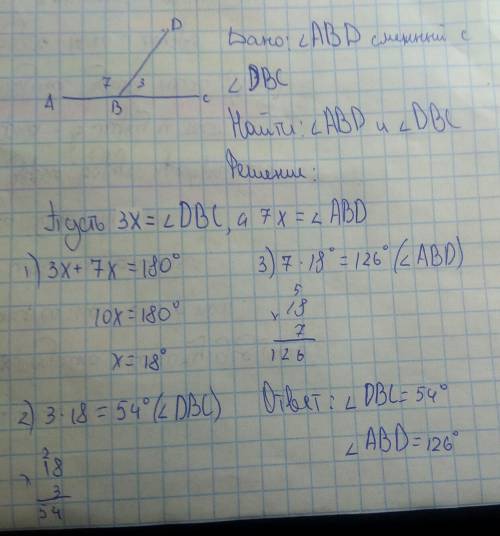 D
7 3
A B C
Дано: ∠ABD смежный с
∠DBC
Найти: ∠ABD и ∠DBC
Решение:
Пусть 3x = ∠DBC, а 7x = ∠ABD
1) 3x + 7x = 180°
10x = 180°
x = 18°
2) 3 · 18 = 54° (∠DBC)
2
18
x 3
54
3) 7 · 18° = 126° (∠ABD)
5
x 18
7
126
Ответ: ∠DBC = 54°
∠ABD = 126°